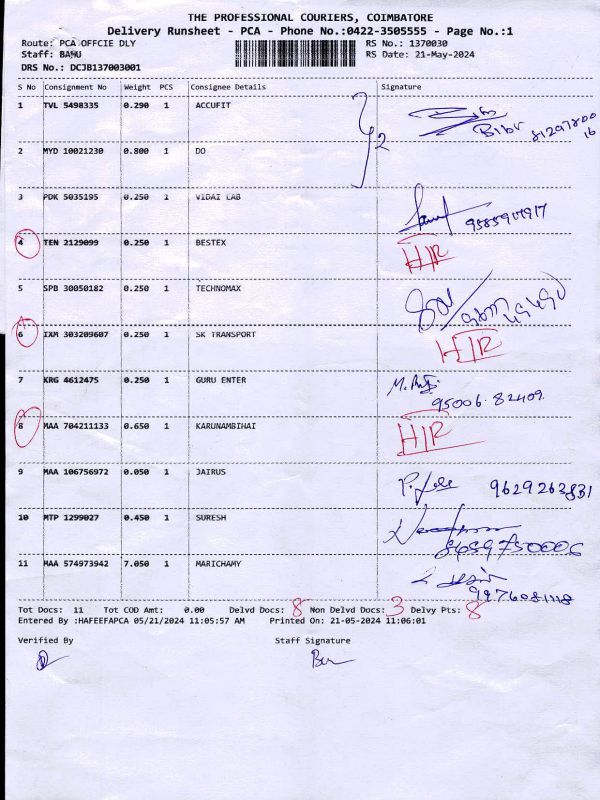 THE PROFESSIONAL COURIERS, COIMBATORE
Delivery Runsheet - PCA - Phone No.:0422-3505555 - Page No.:1
Route: PCA OFFCIE DLY RS No.: 1370030
Staff: BANU RS Date: 21-May-2024
DRS No.: DCJB137003001
S No Consignment No Weight PCS Consignee Details Signature
1 TVL 5498335 0.290 1 ACCUFIT
2 MYD 10021230 0.800 1 DO
3 PDK 5035195 0.250 1 VIDAI LAB
4 TEN 2129099 0.250 1 BESTEX H/R
5 SPB 30050182 0.250 1 TECHNOMAX
6 IXM 303209607 0.250 1 SK TRANSPORT H/R
7 KRG 4612475 0.250 1 GURU ENTER
95006 82409
8 MAA 704211133 0.650 1 KARUNAMBIHAI H/R
9 MAA 106756972 0.050 1 JAIRUS 9629263831
10 MTP 1299027 0.450 1 SURESH
8659750006
11 MAA 574973942 7.050 1 MARICHAMY
9976081118
Tot Docs: 11 Tot COD Amt: 0.00 Delvd Docs: 8 Non Delvd Docs: 3 Delvy Pts: 8
Entered By :HAFEEFAPCA 05/21/2024 11:05:57 AM Printed On: 21-05-2024 11:06:01
Verified By Staff Signature